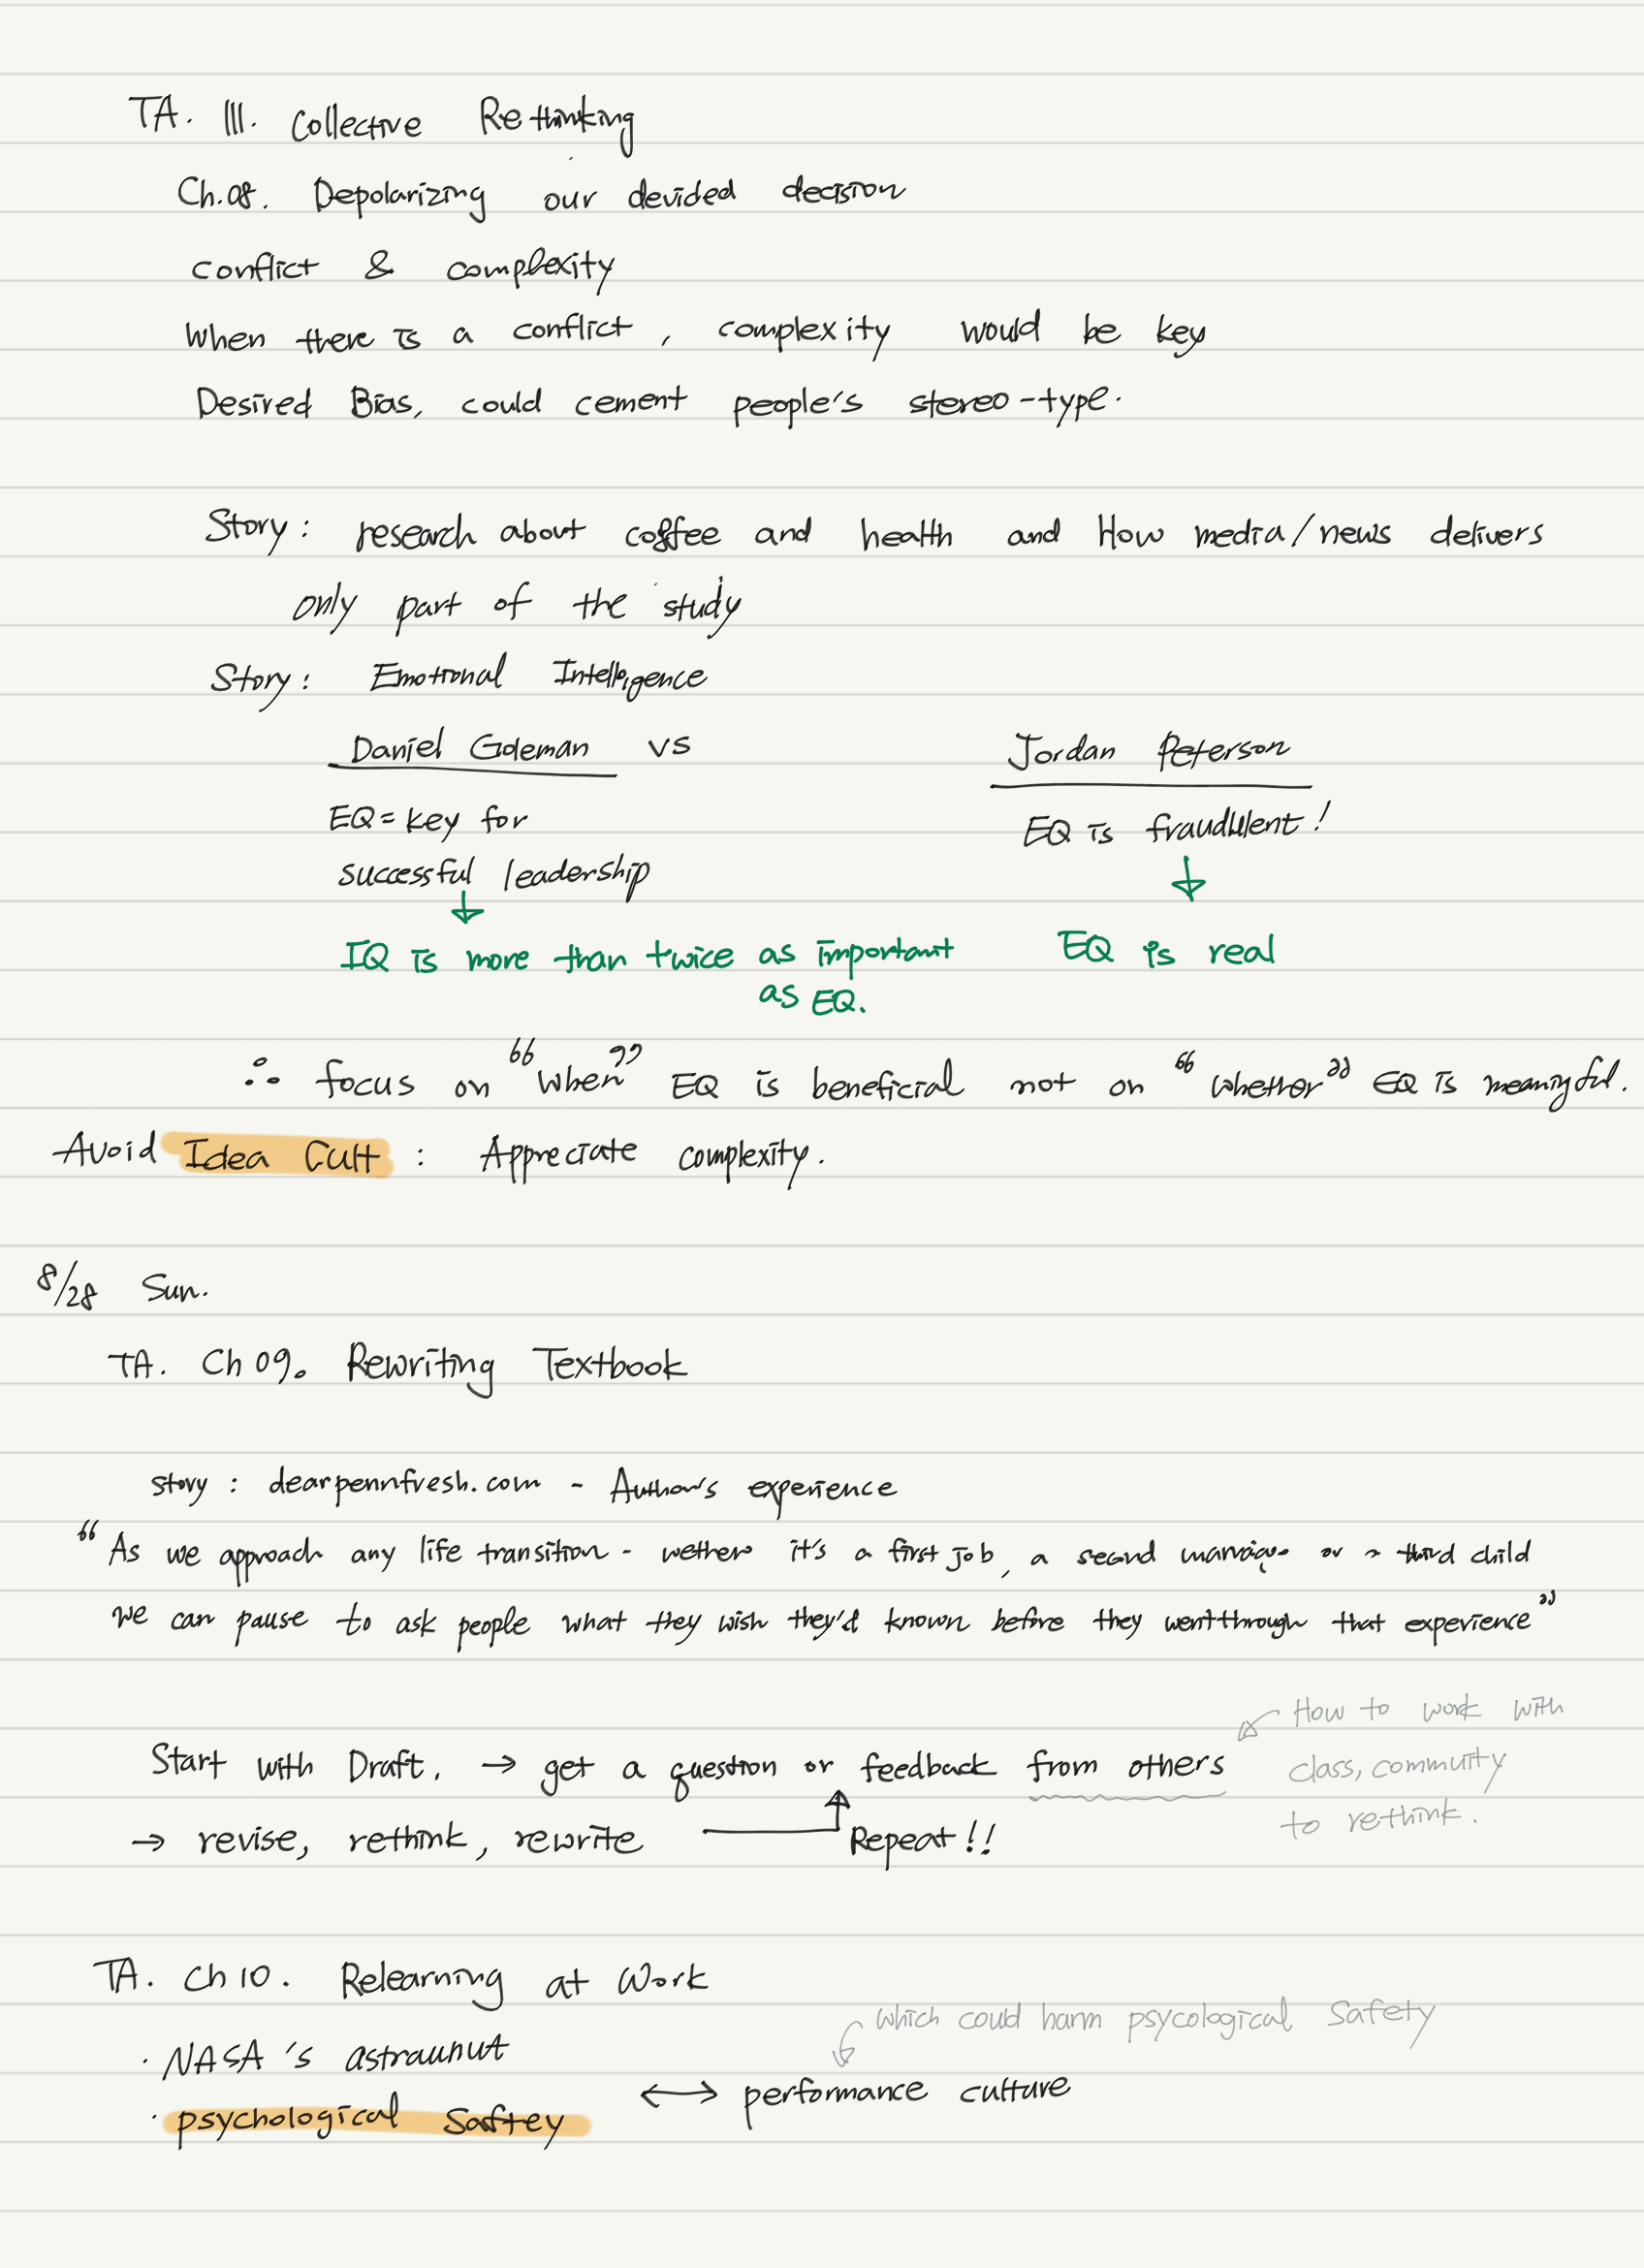 TA. III. Collective Rethinking
Ch.08. Depolarizing our devided decision
conflict & complexity
When there is a conflict, complexity would be key
Desired Bias, could cement people's stereo-type.
Story: research about coffee and health and How media/news delivers
only part of the study
Story: Emotional Intelligence
Daniel Goleman vs Jordan Peterson
EQ = key for
successful leadership
EQ is fraudulent!
↓ ↓
IQ is more than twice as important
as EQ.
EQ is real
∴ focus on "When" EQ is beneficial not on "whether" EQ is meaningful.
Avoid Idea Cult : Appreciate complexity.
8/28 Sun.
TA. Ch 09. Rewriting Textbook
story : dearpennfresh.com - Author's experience
"As we approach any life transition - wether it's a first job, a second marriage or a third child
we can pause to ask people what they wish they'd known before they went through that experience"
Start with Draft. → get a question or feedback from others
How to work with
class, community
to rethink.
→ revise, rethink, rewrite Repeat!!
TA. Ch 10. Relearning at Work
· NASA's astraunut
which could harm psycological Safety
· psychological Saftey ↔ performance culture